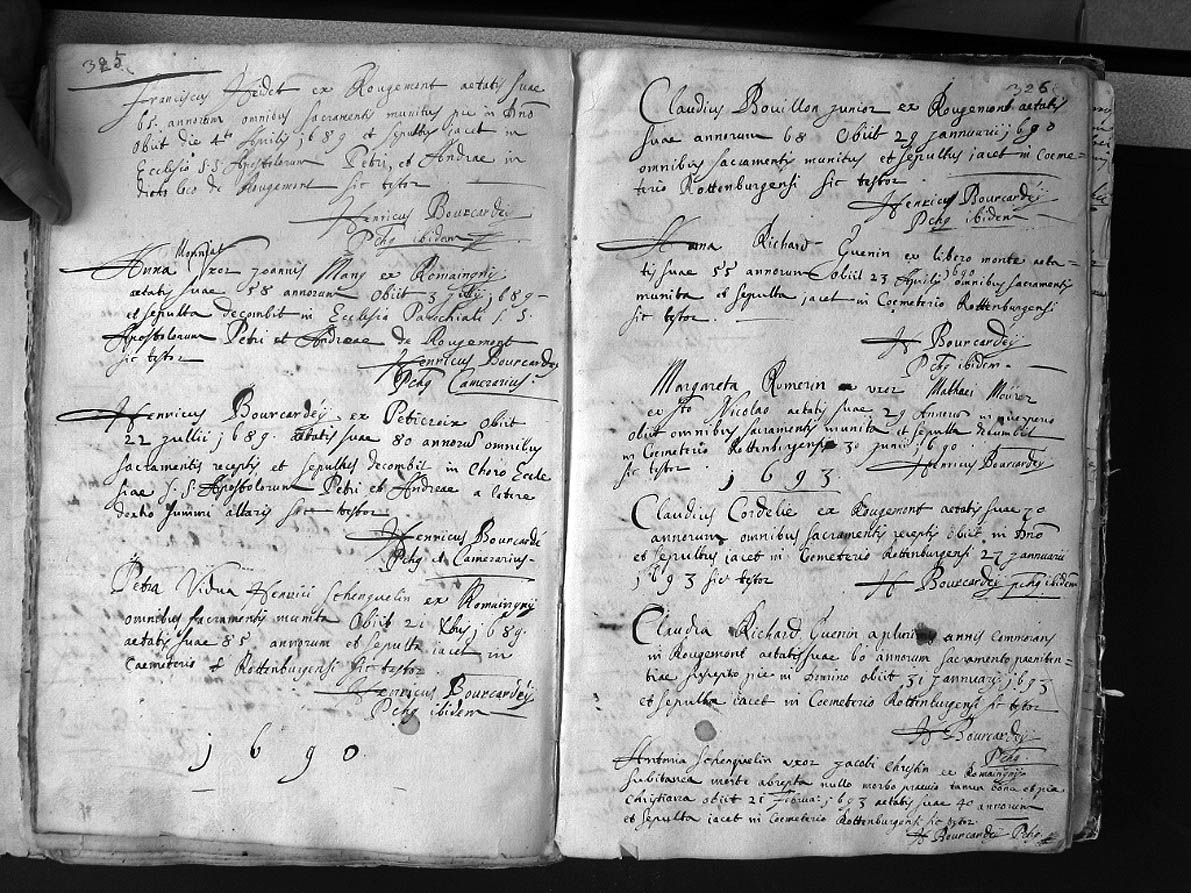 325
Franciscus Hedet ex Rougemont aetatis suae
65. annorum omnibus sacramentis munitus pie in Dno
obiit die 4to Aprilis 1689 et sepultus iacet in
Ecclesia S.S. Apostolorum Petri, et Andreae in
dicto loco de Rougemont sic testor
Henricus Bourcardéÿ
Pchg ibidem
Monnat
Anna Uxor joannis Mang ex Romaingnij
aetatis suae 58 annorum Obiit 3 julij 1689
et sepulta decombit in Ecclesia Parochiali S. S.
Apostolorum Petri et Andreae de Rougemont
sic testor
Henricus Bourcardéÿ
Pchg Camerarius.
Henricus Bourcardéÿ ex Petitcroix obiit
22 jullii 1689. aetatis suae 80 annorum omnibus
sacramentis receptis et sepultus decombit in Choro Eccle
siae S.S. Apostolorum Petri et Andreae a latere
dextro summi altaris sic testor
Henricus Bourcardé
Pchg et Camerarius.
Petra Vidua Henrici schenquelin ex Romaingnij
omnibus sacramentis munita Obiit 21 Xbris 1689.
aetatis suae 85 annorum et sepulta iacet in
Caemeterio Rottenburgensi sic testor
Henricus Bourcardéÿ
Pchg ibidem
1690.
326
Claudius Bouillon junior ex Rougemont aetatis
suae annorum 68 Obiit 29 jannuarii 1690
omnibus sacramentis munitus et sepultus jacet in Coeme=
terio Rottenburgensi sic testor
Henricus Bourcardéÿ
Pchg ibidem
Anna Richard Guenin ex libero monte aeta=
tis suae 55 annorum obiit 23 Aprilis 1690 omnibus sacramentis
munita et sepulta jacet in Coemeterio Rottenburgensi
sic testor.
H Bourcardéÿ
Pchg ibidem.
Margareta Romerin uxor Mathaei Mourer
ex sto Nicolao aetatis suae 29 Annorum in puerperio
obiit omnibus sacramentis munita et sepulta decumbit
in Coemeterio Rottenburgensi 30 junii 1690
sic testor Henricus Bourcardéÿ
1693.
Claudius Cordelie ex Rougemont aetatis suae 70
annorum omnibus sacramentis receptis obiit in Dno
et sepultus iacet in Coemeterio Rottenburgensi 27 januarii
1693 sic testor H Bourcardéÿ pchg ibidem
Claudia Richard Guenin a pluribus annis commorans
in Rougemont aetatis suae 60 annorum sacramento paeniten=
tiae suscepto pie in Domino obiit 31 januarij 1693
et sepulta iacet in Coemeterio Rottenburgensi sic testor
H Bourcardéÿ
Pchg.
Antonia schenquelin uxor jacobi Christin ex Romaingnij
subitanea morte abrepta nullo morbo praevio tamen bona et pia
christiana obiit 21 Februar: 1693 aetatis suae 40 annorum
et sepulta iacet in Coemeterio Rottenburgensi sic testor.
H Bourcardéÿ Pchg.